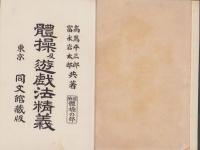 高島平三郎
富永岩太郎
共著
體操及遊戲法精義
體操の部
東京 同文館藏版